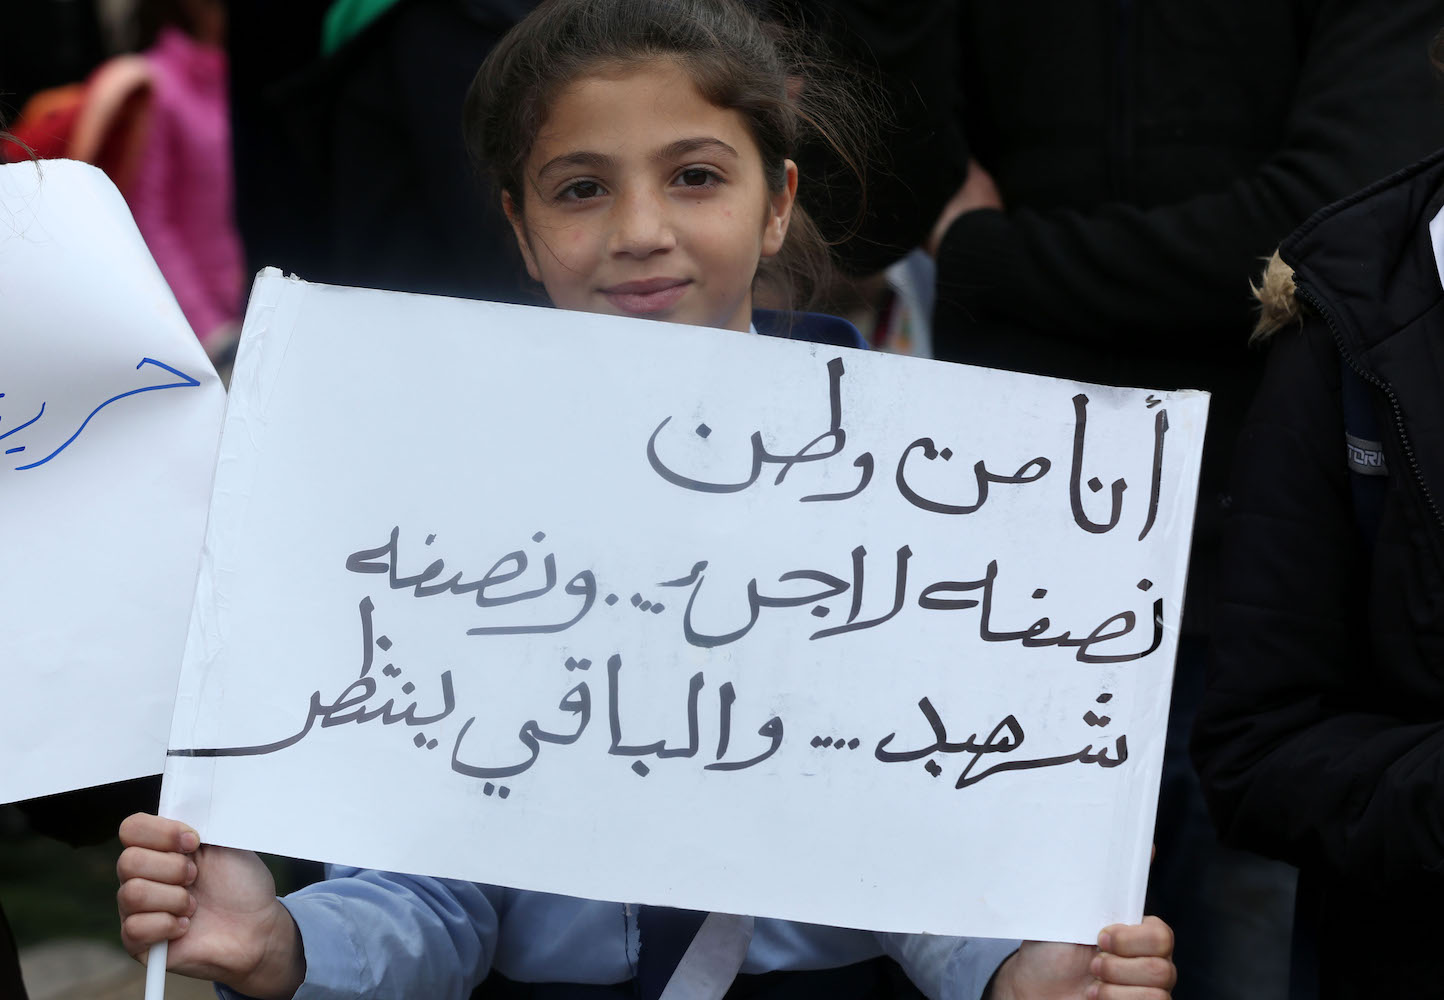 أنا من وطن
نصفه لاجئ ... ونصفه
شهيد .... والباقي ينتظر